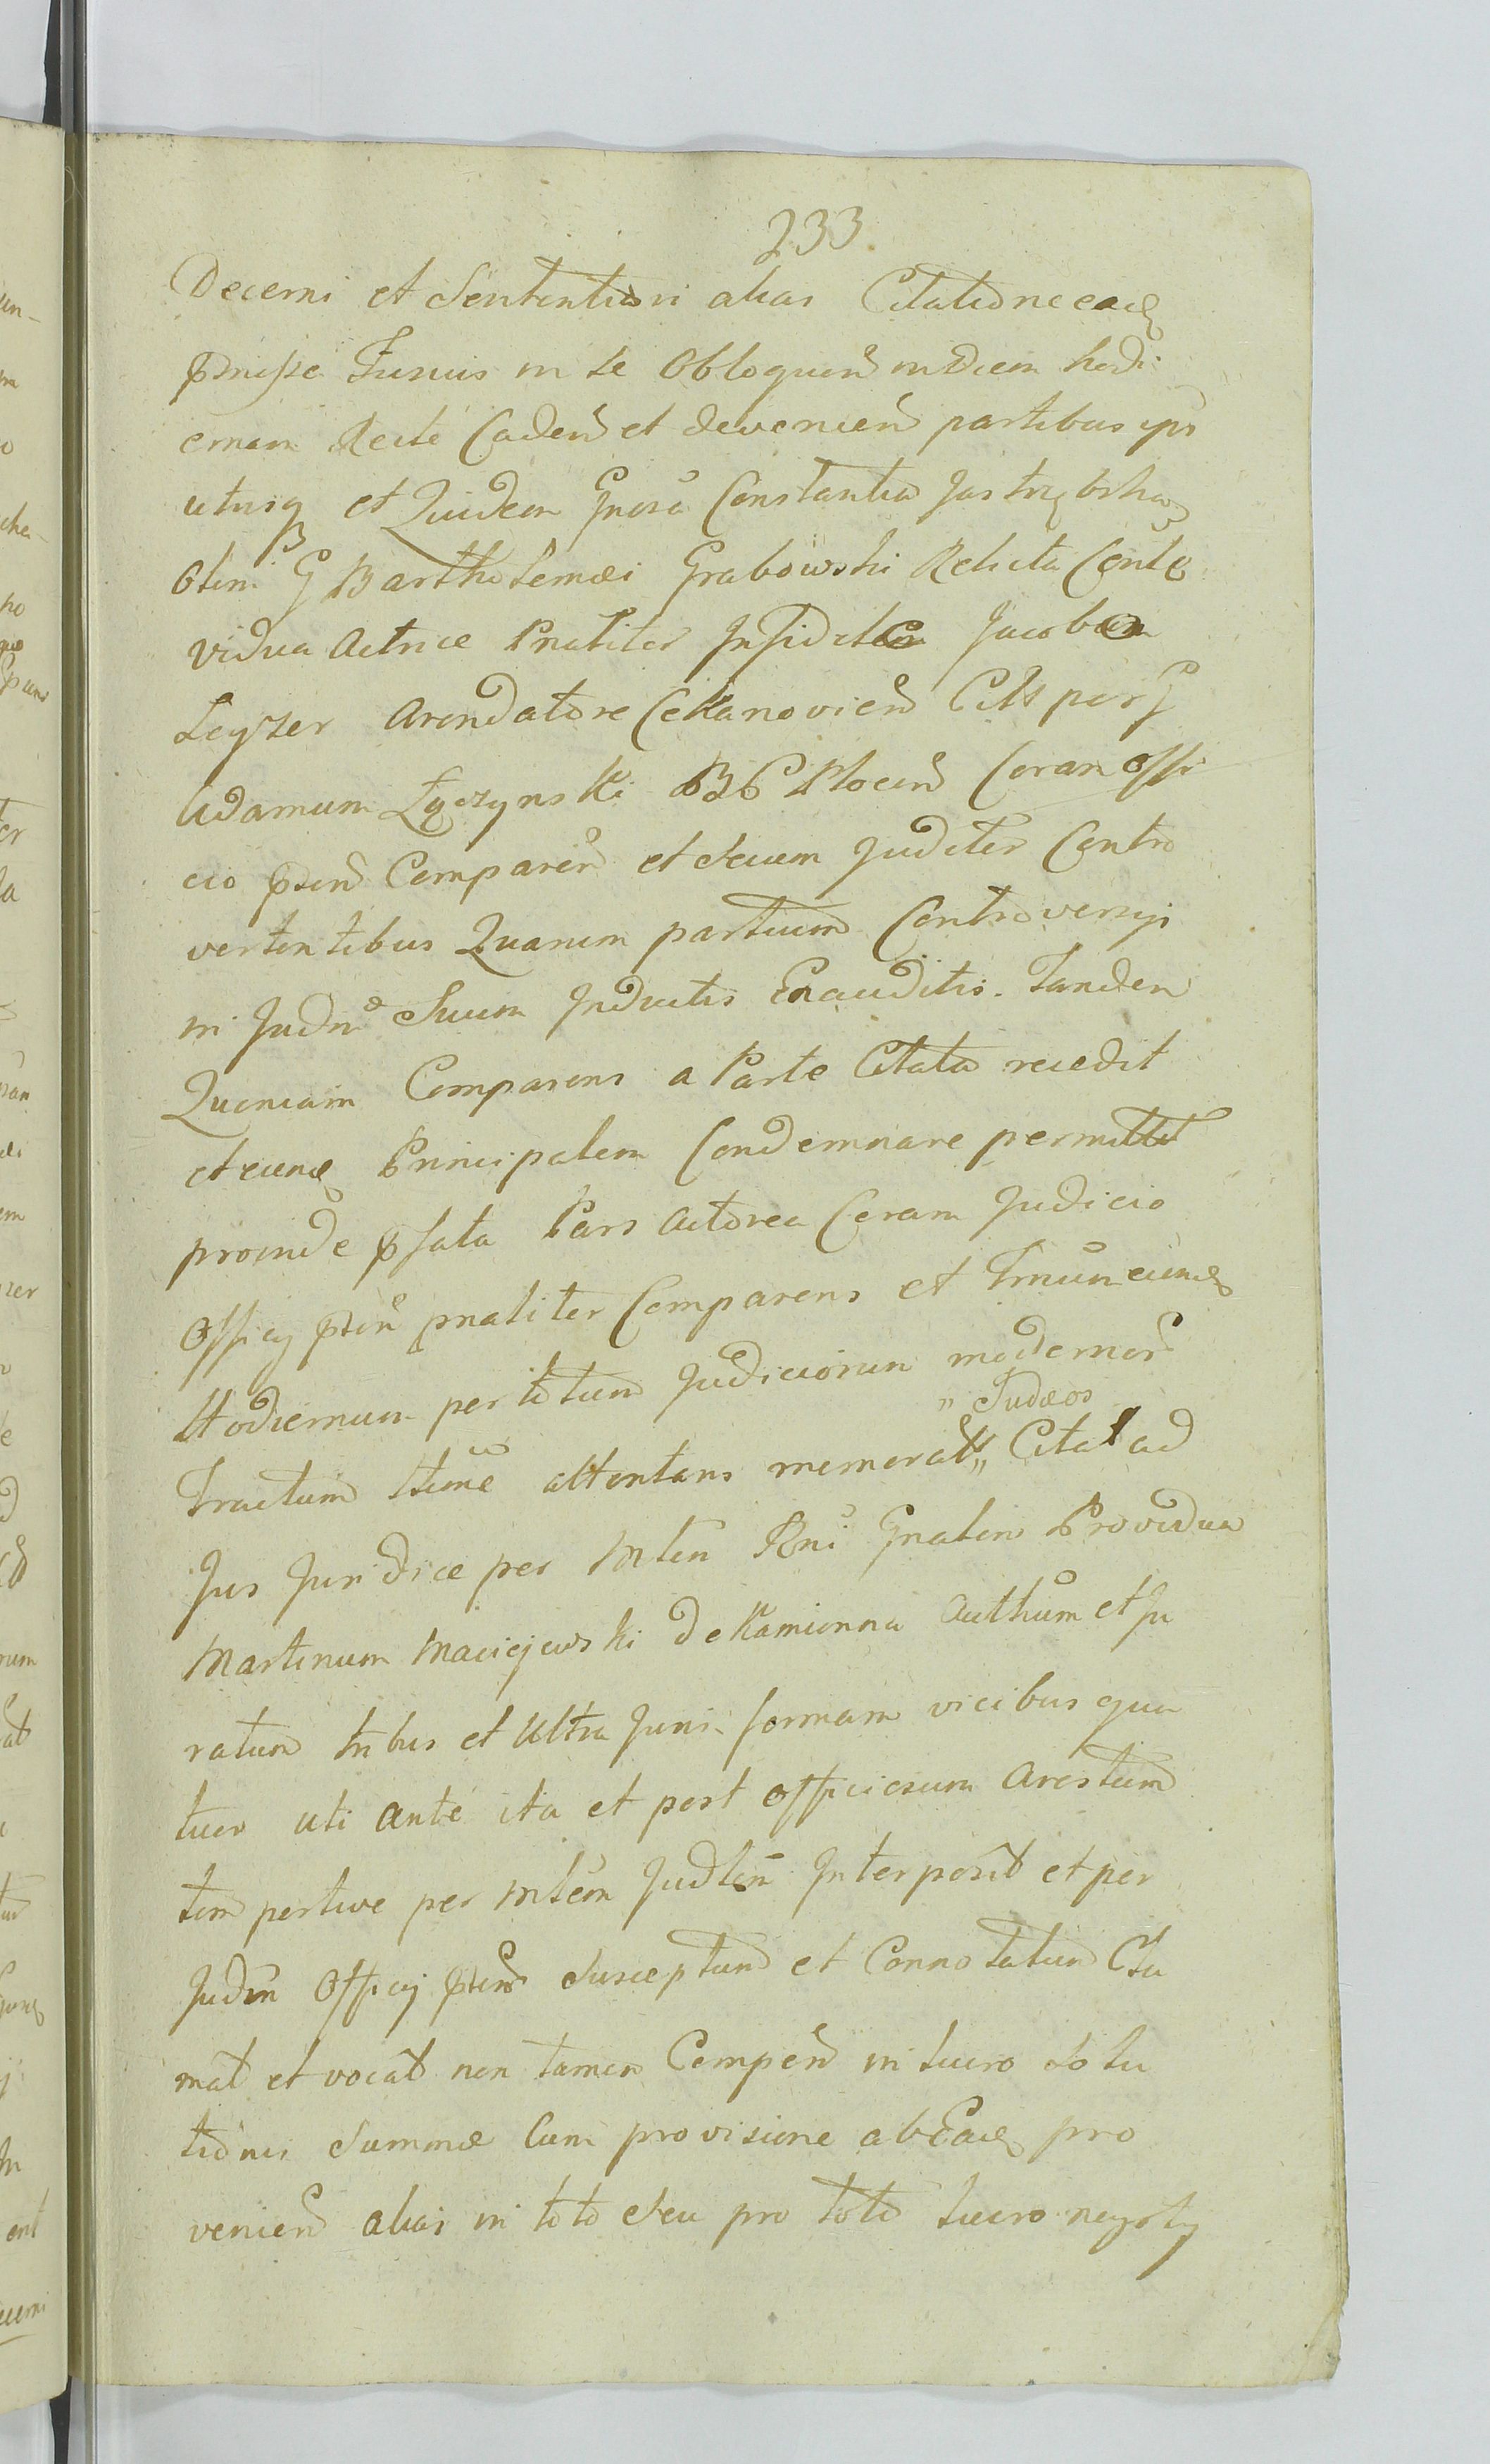 233.
Decerni et Sententiari alias Citatione ead
pmisse Fusius in se Obloquen in Diem hodi
ernam Recte Caden et devenien partibus ips
utrisq et Quidem Gnosa Constantia Jastrzębska
Olim G Bartholemæi Grabowski Relicta Conle
vidua Actrice Pnaliter Infideles Jacobum
Leyzer Arendatore Cekanovien Citt per G
Adamum Łączynski BG Plocen Coram Offi
cio pten Comparen et Secum Juditer Contro
vertentibus Quarum partium Controversys
in Judm Suum Inductis Exauditis. Tandem
Quoniam Comparens a Parte Citata recedit
et eund Principalem Condemnare permittit
proinde psata Pars Actorea Coram Judicio
Officy pten pnaliter Comparens et Tmun eund
Hodiernum per totum Judiciorum modernor
" Judæos
Tractum Ttime attentans memorat " Citat ad
Jus Juridice per Mlem Rni Gnalem Providum
Martinum Maciejewski de Kamionna Authum et Ju
ratum tribus et Ultra Juris formam vicibus qua
tuor uti ante ita et post Officiosum Arestum
tempestive per Mlem Judlem Interposit et per
Judm Officy pten Susceptum et Connotatum Cla
mat et vocat non tamen Compen in lucro Solu
tionis Summæ Cum provisione ab Ead pro
venien alias in toto Seu pro toto lucro negoty